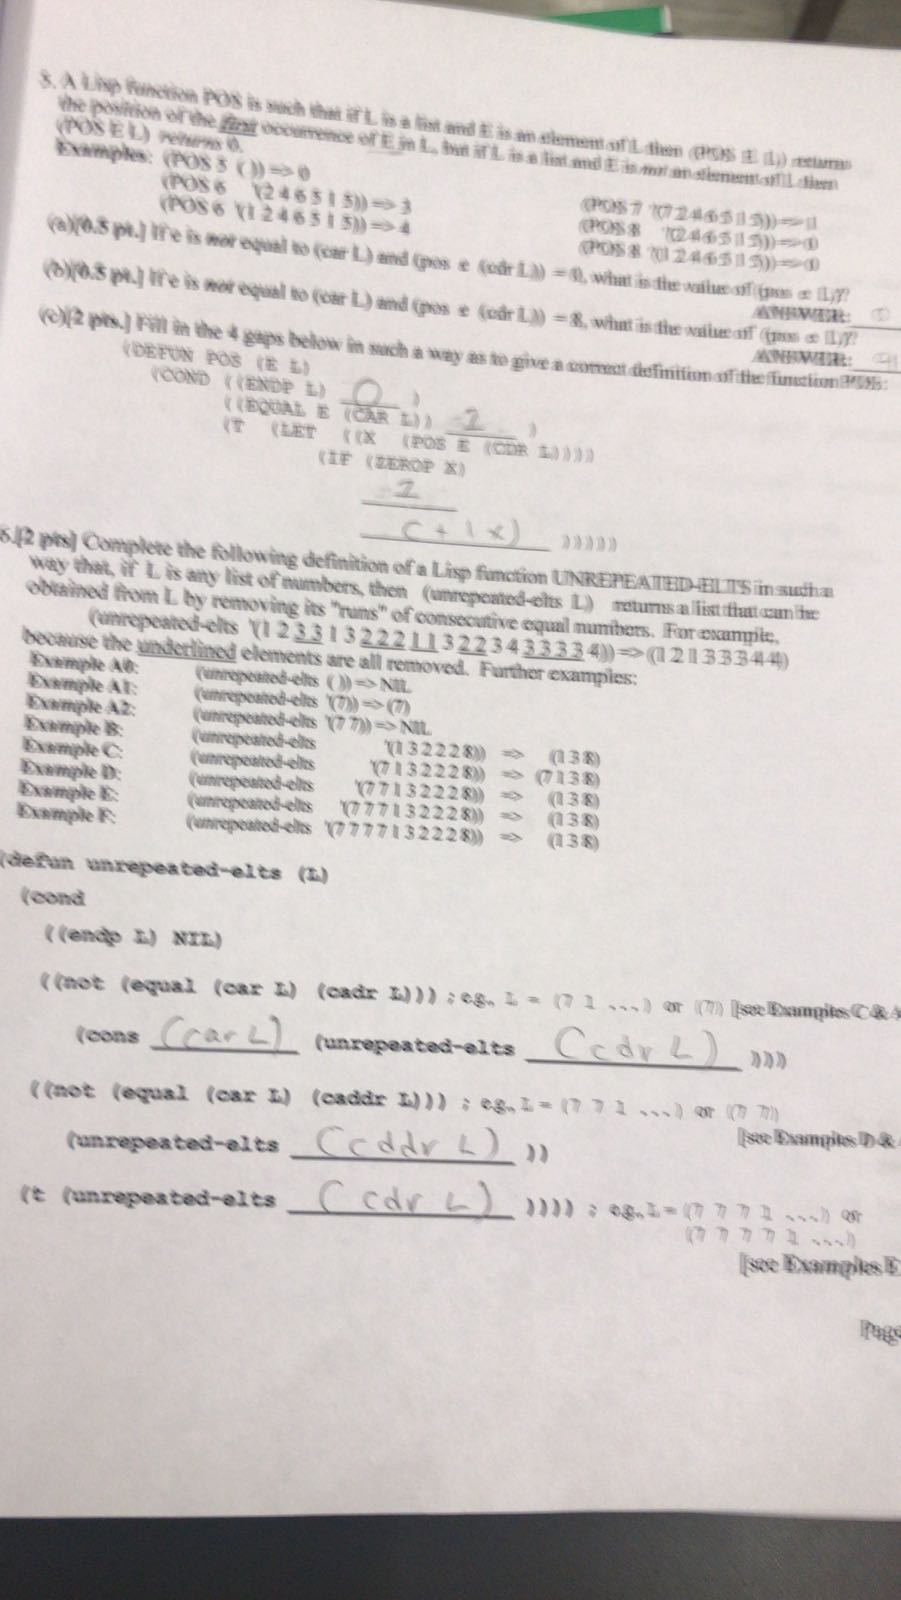 5. A Lisp function POS is such that if L is a list and E is an element of L then (POS E L) returns
the position of the first occurrence of E in L, but if L is a list and E is not an element of L then
(POS E L) returns 0.
Examples: (POS 5 ()) => 0
(POS 6 '(2 4 6 5 1 5)) => 3 (POS 7 '(7 2 4 6 5 1 5)) => 1
(POS 6 '(1 2 4 6 5 1 5)) => 4 (POS 8 '(2 4 6 5 1 5)) => 0
(POS 8 '(1 2 4 6 5 1 5)) => 0
(a)[0.5 pt.] If e is not equal to (car L) and (pos e (cdr L)) = 0, what is the value of (pos e L)?
ANSWER:
(b)[0.5 pt.] If e is not equal to (car L) and (pos e (cdr L)) = 8, what is the value of (pos e L)?
ANSWER:
(c)[2 pts.] Fill in the 4 gaps below in such a way as to give a correct definition of the function POS:
(DEFUN POS (E L)
(COND ((ENDP L) 0 )
((EQUAL E (CAR L)) )
(T (LET ((X (POS E (CDR L))))
(IF (ZEROP X)
(+ 1 x) )))))
6.[2 pts] Complete the following definition of a Lisp function UNREPEATED-ELTS in such a
way that, if L is any list of numbers, then (unrepeated-elts L) returns a list that can be
obtained from L by removing its "runs" of consecutive equal numbers. For example,
(unrepeated-elts '(1 2 3 3 1 3 2 2 2 1 1 3 2 2 3 4 3 3 3 3 4)) => (1 2 1 3 3 3 4 4)
because the underlined elements are all removed. Further examples:
Example A0: (unrepeated-elts ( )) => NIL
Example A1: (unrepeated-elts '(7)) => (7)
Example A2: (unrepeated-elts '(7 7)) => NIL
Example B: (unrepeated-elts '(1 3 2 2 2 8)) => (1 3 8)
Example C: (unrepeated-elts '(7 1 3 2 2 2 8)) => (7 1 3 8)
Example D: (unrepeated-elts '(7 7 1 3 2 2 2 8)) => (1 3 8)
Example E: (unrepeated-elts '(7 7 7 1 3 2 2 2 8)) => (1 3 8)
Example F: (unrepeated-elts '(7 7 7 7 1 3 2 2 2 8)) => (1 3 8)
(defun unrepeated-elts (L)
(cond
((endp L) NIL)
((not (equal (car L) (cadr L))) ; e.g., L = (7 1 ...) or (7) [see Examples C &
(cons (car L) (unrepeated-elts (cdr L) )))
((not (equal (car L) (caddr L))) ; e.g., L = (7 7 1 ...) or (7 7)
[see Examples D &
(unrepeated-elts (cddr L) ))
(t (unrepeated-elts (cdr L) )))) ; e.g., L = (7 7 7 1 ...) or
(7 7 7 7 1 ...)
[see Examples E
Page